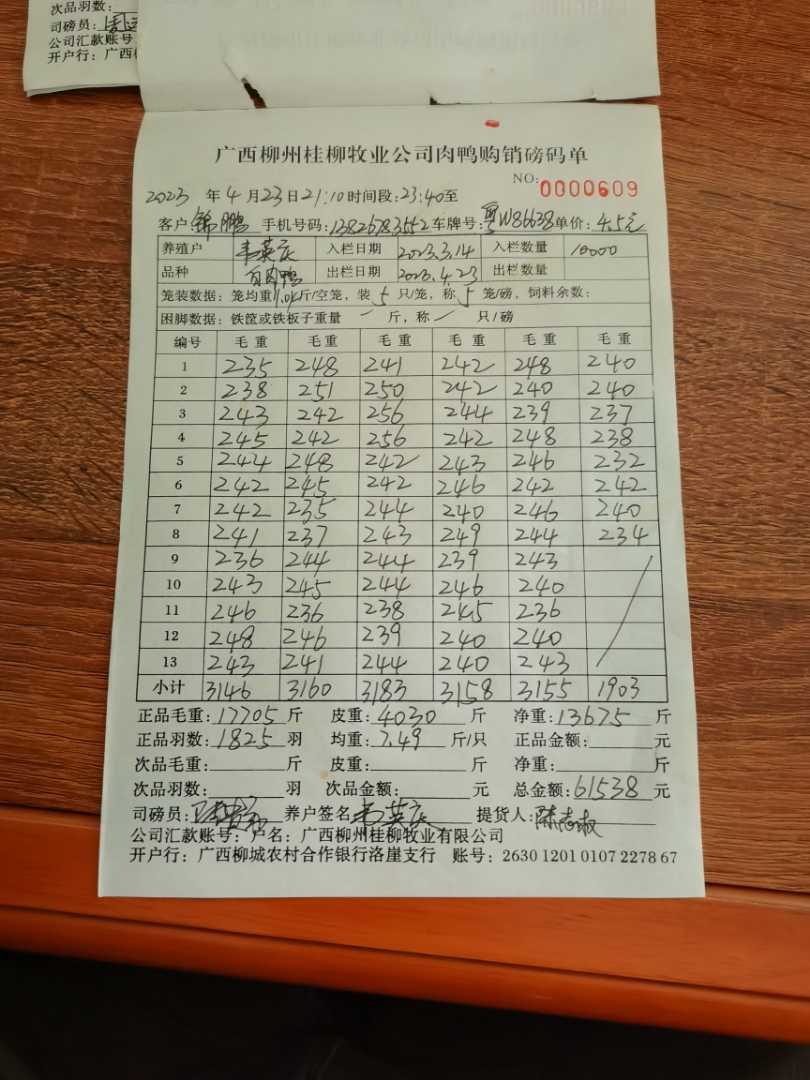 次品羽数：
司磅员：
公司汇款账号
开户行：广西
广西柳州桂柳牧业公司肉鸭购销磅码单
NO: 0000609
2023 年 4 月 23 日 21:10 时间段：23:40 至
客户：锦鹏 手机号码：13826783552 车牌号：粤W86638 单价：4.5元
养殖户 韦英庆 入栏日期 2023.3.14 入栏数量 10000
品种 白肉鸭 出栏日期 2023.4.23 出栏数量
笼装数据：笼均重 斤/空笼，装 5 只/笼，称 5 笼/磅，饲料余数：
困脚数据：铁筐或铁板子重量 一 斤，称 一 只/磅
编号 毛重 毛重 毛重 毛重 毛重 毛重
1 235 248 241 242 248 240
2 238 251 250 242 240 240
3 243 242 256 244 239 237
4 245 242 256 242 248 238
5 244 248 242 243 246 232
6 242 245 242 246 242 242
7 242 235 244 240 246 240
8 241 237 243 249 244 234
9 236 244 244 239 243
10 243 245 244 246 240
11 246 236 238 245 236
12 248 246 239 240 240
13 243 241 244 240 243
小计 3146 3160 3183 3158 3155 1903
正品毛重：17705 斤 皮重：4030 斤 净重：13675 斤
正品羽数：1825 羽 均重：7.49 斤/只 正品金额： 元
次品毛重： 斤 皮重： 斤 净重： 斤
次品羽数： 羽 次品金额： 元 总金额：61538 元
司磅员： 养户签名：韦英庆 提货人：陈志权
公司汇款账号：户名：广西柳州桂柳牧业有限公司
开户行：广西柳城农村合作银行洛崖支行 账号：2630 1201 0107 2278 67